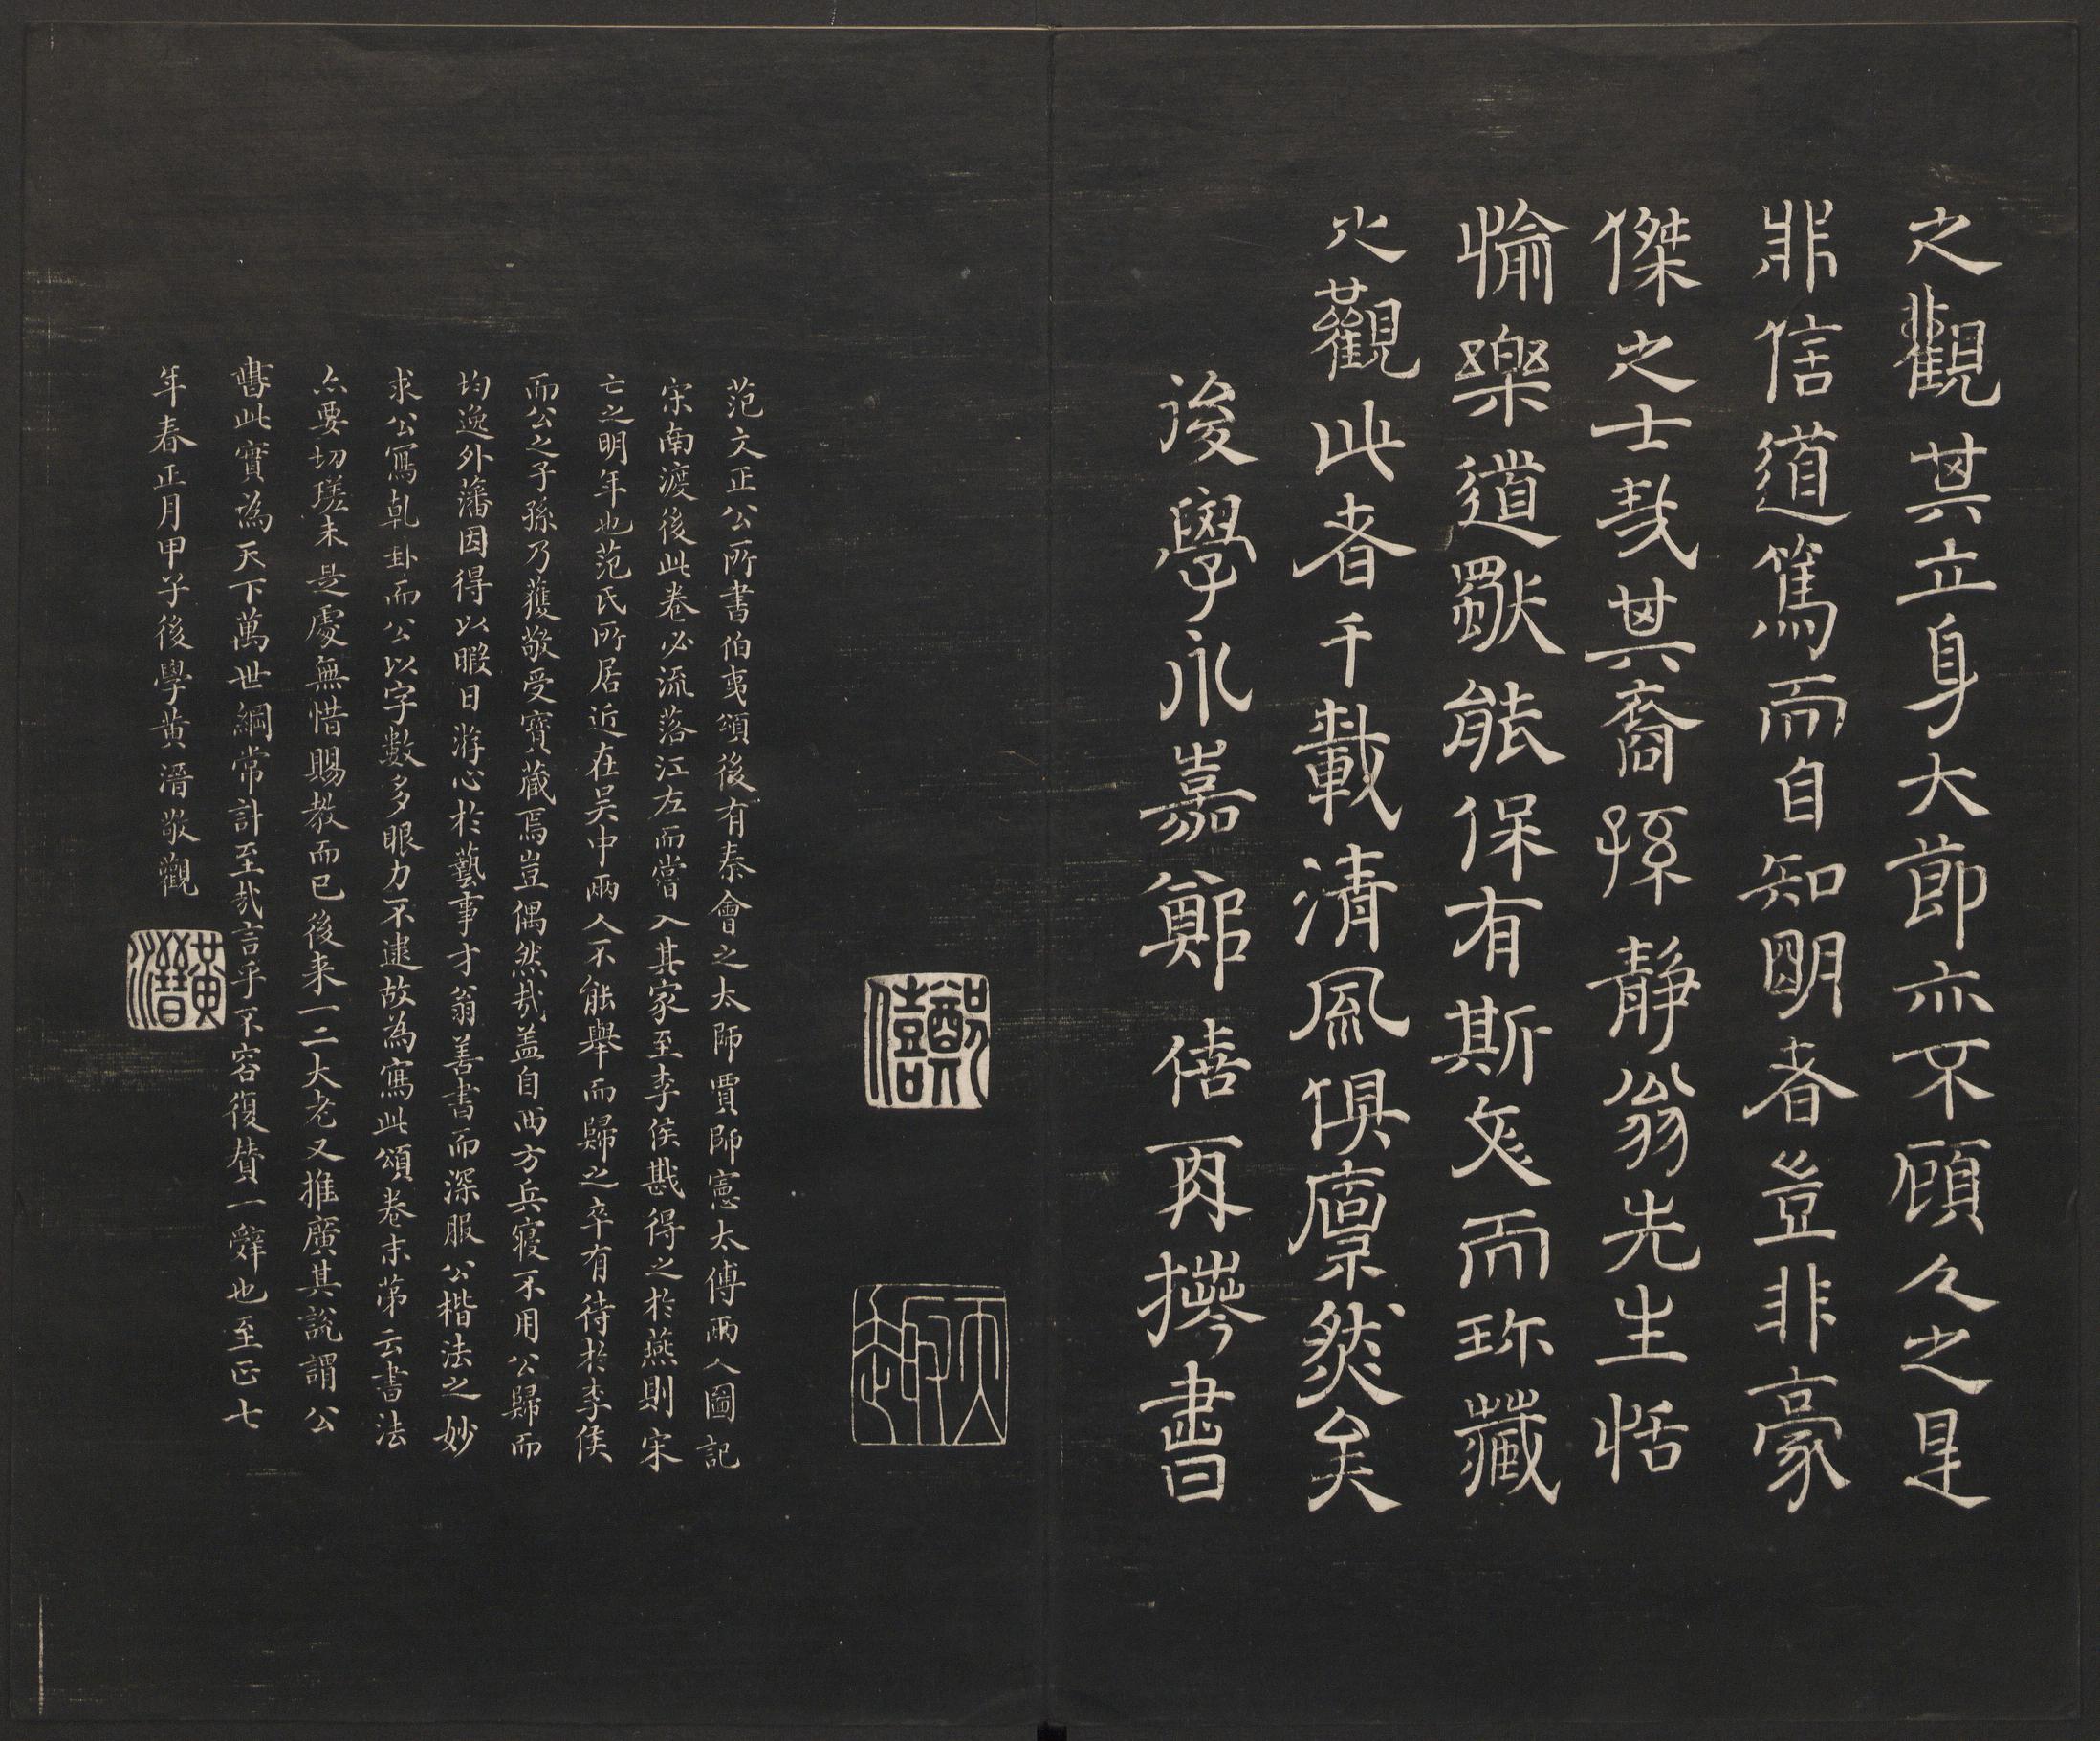 之觀其立身大節亦不顧人之是
非信道篤而自知明者豈非豪
傑之士哉其裔孫靜翁先生恬
愉樂道猷能保有斯文而珎藏
之觀此者千載清風俱凛然矣
後學永嘉鄭僖再攑書
鄭僖
范文正公所書伯夷頌後有秦會之太師賈師憲太傅兩人圖記
宋南渡後此卷必流落江左而嘗入其家至李侯戡得之於燕則宋
亡之明年也范氏所居近在吴中兩人不能舉而歸之卒有待於李侯
而公之子孫乃獲敬受寶藏焉豈偶然㢤盖自西方兵寝不用公歸而
均逸外藩因得以暇日游心於藝事才翁善書而深服公楷法之妙
求公寫乹卦而公以字數多眼力不逮故為寫此頌卷末苐云書法
亦要切瑳未是處無惜賜教而已後来一二大老又推廣其説謂公
書此實為天下萬世綱常計至㢤言乎不容復賛一辭也至正七
年春正月甲子後學黄溍敬觀
黄溍